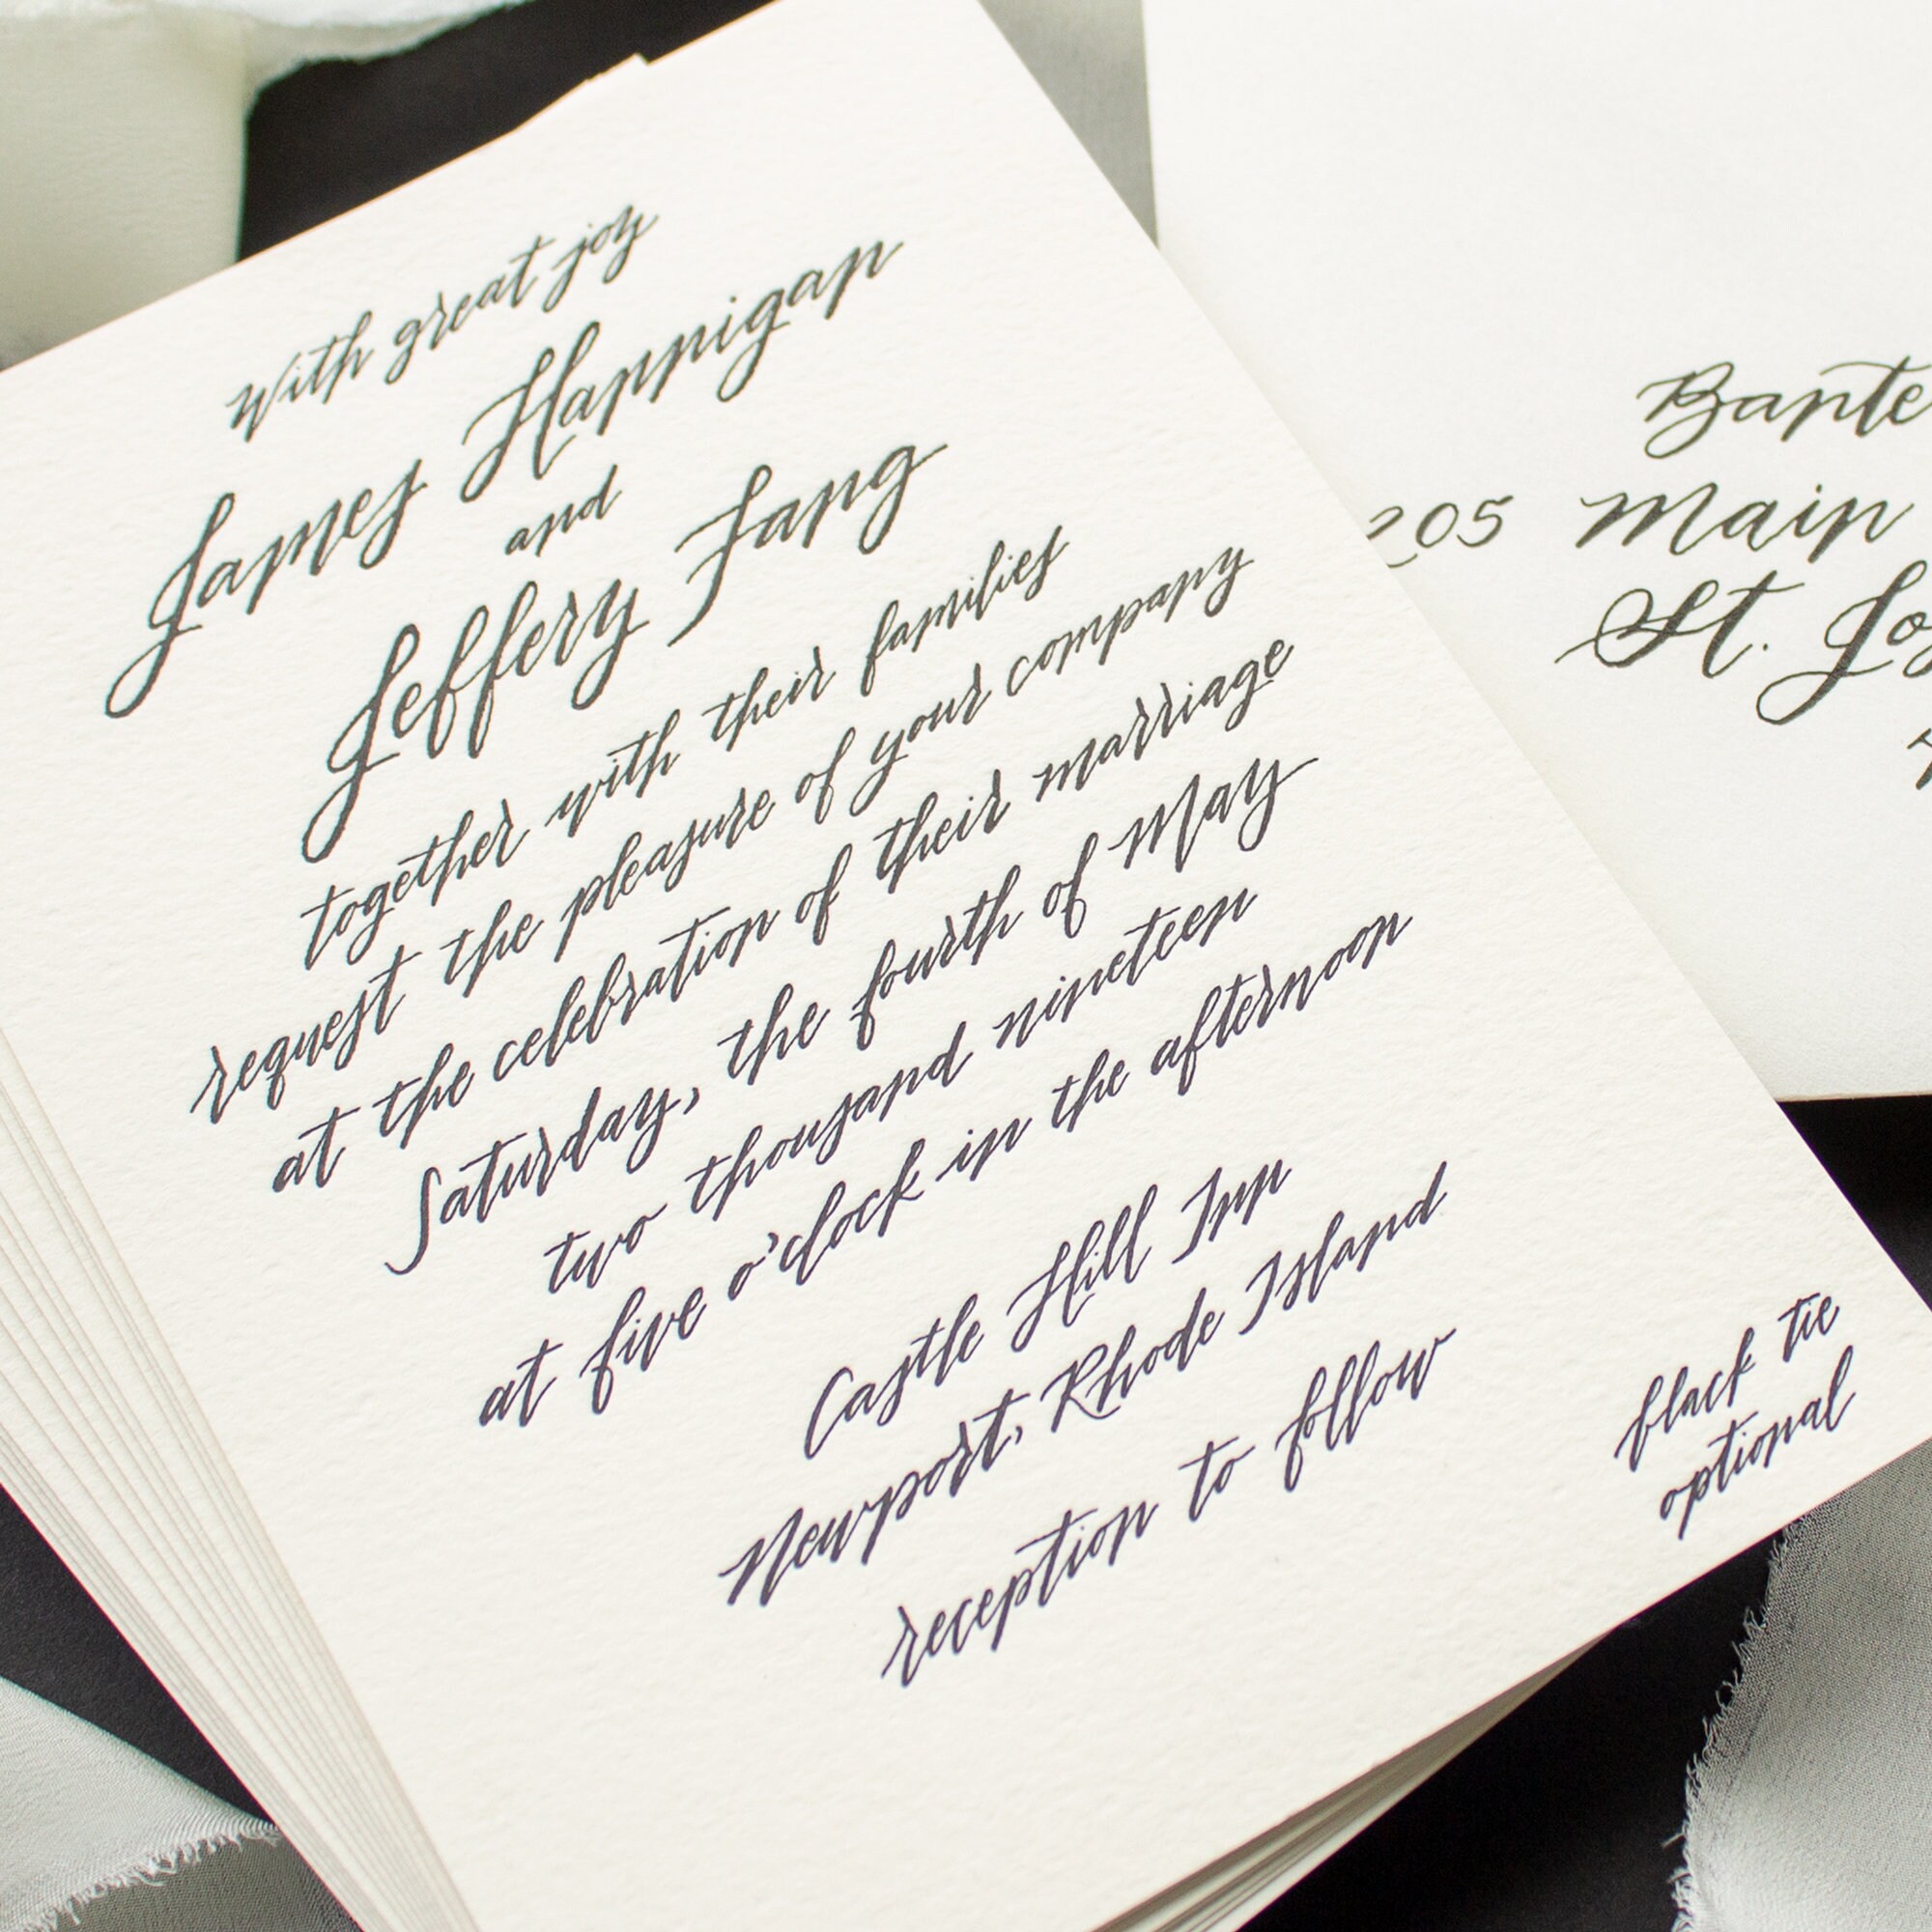 with great joy
James Hannigan
and
Jeffery Fang
together with their families
request the pleasure of your company
at the celebration of their marriage
Saturday, the fourth of May
two thousand nineteen
at five o'clock in the afternoon
Castle Hill Inn
Newport, Rhode Island
reception to follow
black tie
optional
205 Main
St.